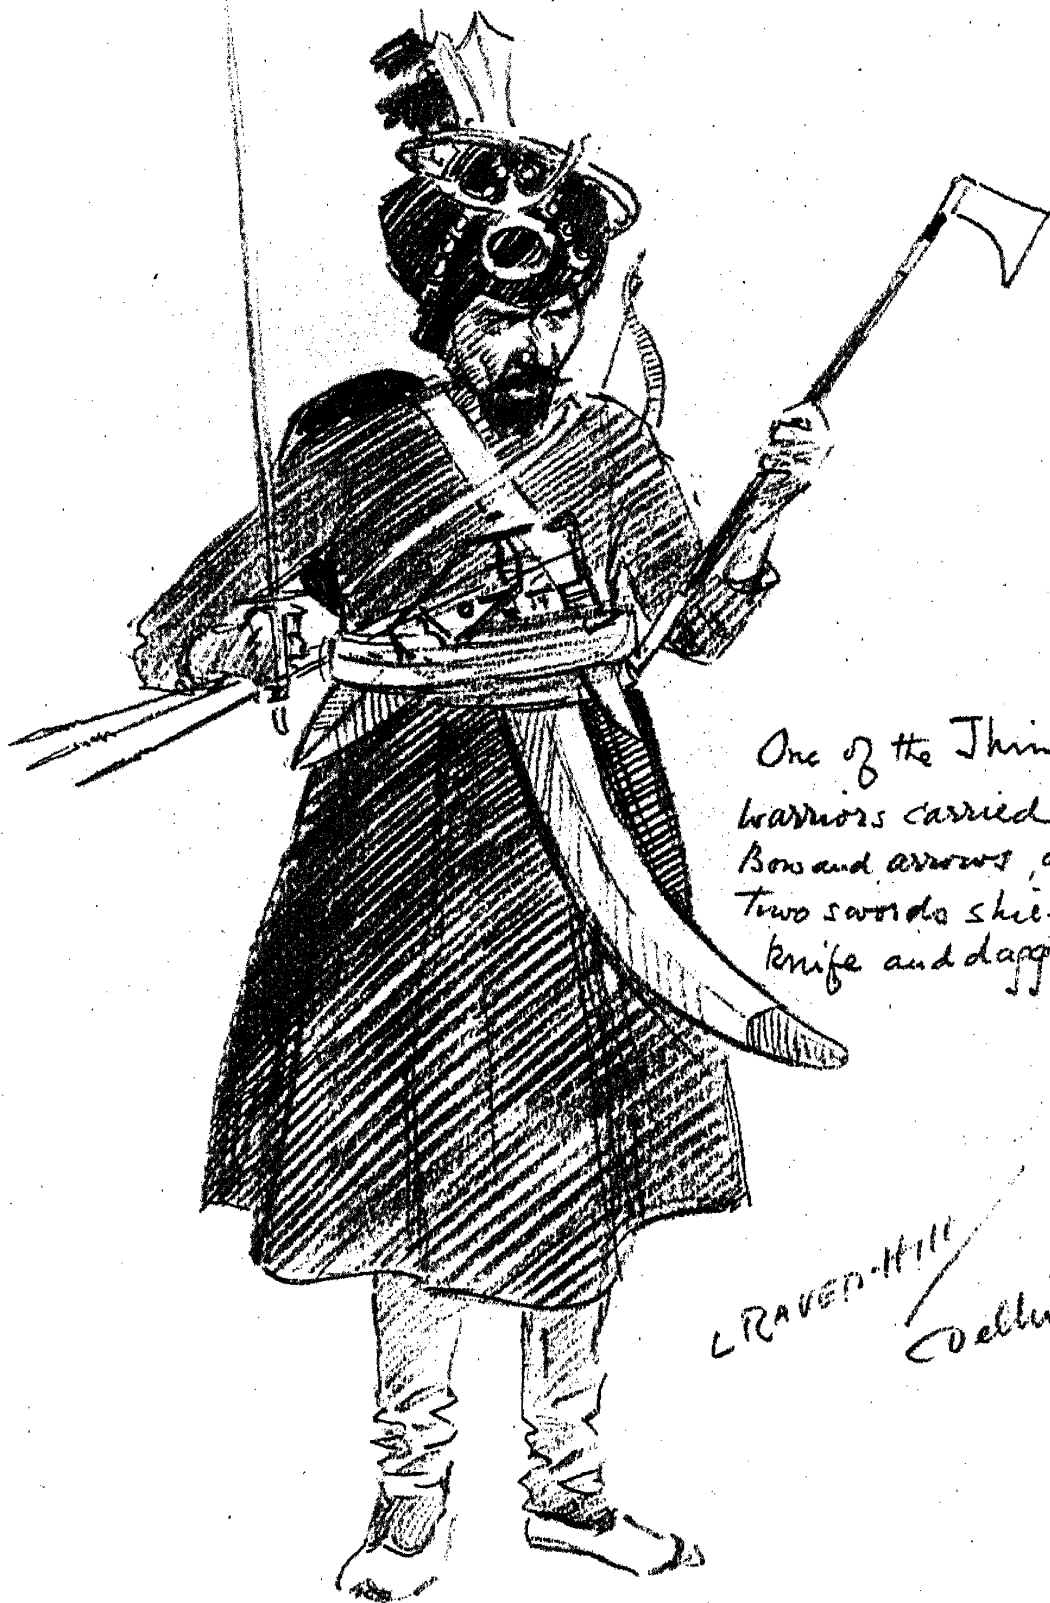 One of the Jhin
warriors carried
Bow and arrows,
Two swords shie
knife and dagg
L RAVEN·HILL
Delhi